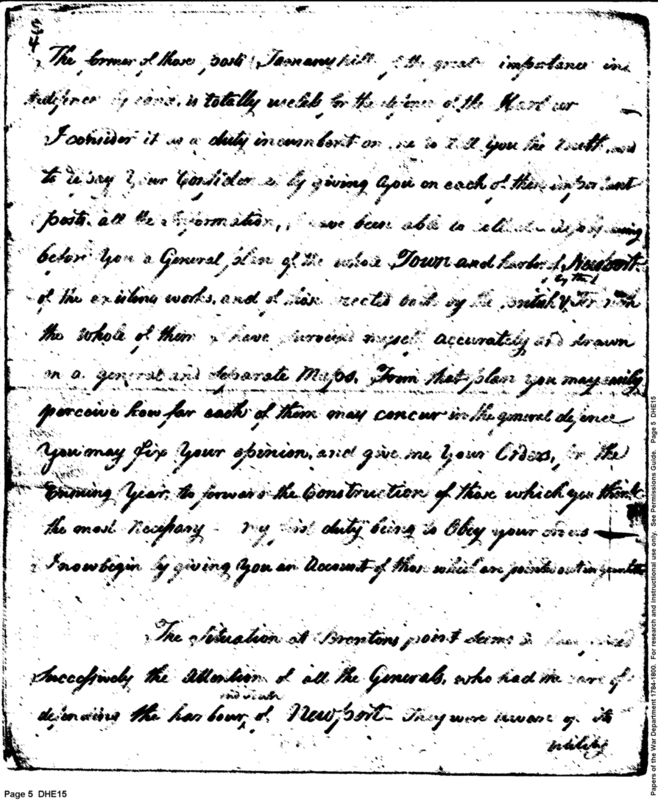 The former of those posts Tomany hill of the great importance in
defence by land, is totally useless for the defence of the Harbour
I consider it as a duty incumbent on me to tell you the truth and
to repay Your Confidence by giving You on each of these important
posts all the Information, I have been able to
before You a General plan of the whole Town and harbor of Newport
of the existing works, and of those erected both by the british & by the French
the whole of them I have surveied myself accurately and drawn
on a general and separate Maps. From that plan you may easily
perceive how far each of them may concur in the general defence
You may fix Your opinion, and give me Your Orders, for the
Ensuing Year, to forward the Construction of those which you think
the most necessary - my first duty being to Obey your orders
I now begin by giving You an Account of those which are pointed out in
The Situation at Brentons point seems
Successively the Attention of all the Generals, who had the care of
defending the harbour of Newport - They were aware of its
utility
Papers of the War Department 1784-1800. For research and instructional use only. See Permissions Guide. Page 5 DHE15
Page 5 DHE15